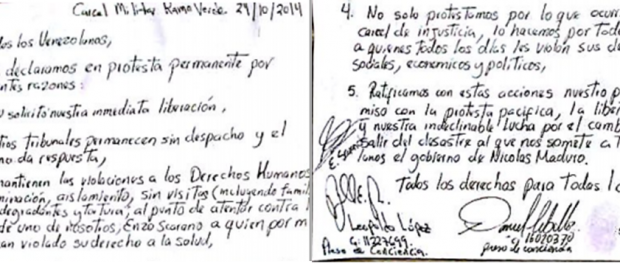 Carcel Militar Ramo Verde 29/10/2014
los Venezolanos,
declaramos en protesta permanente por
razones:
solicitó nuestra inmediata liberación,
tribunales permanecen sin despacho y el
no da respuesta,
mantienen las violaciones a los Derechos Humanos
aislamiento, sin visitas (incluyendo famil
degradantes y tortura, al punto de atentar contra l
de uno de nosotros, Enzo Scarano a quien por m
an violado su derecho a la salud,
4. No solo protestamos por lo que ocurr
carcel de injusticia, lo hacemos por Tod
a quienes Todos los días les violan sus d
sociales, economicos y politicos,
5. Ratificamos con estas acciones nuestro p
miso con la protesta pacifica, la liber
y nuestra indeclinable lucha por el camb
salir del desastre al que nos somete a T
lanos el gobierno de Nicolas Maduro.
Todos los derechos para Todos l
Leopoldo López
Preso de Conciencia.
preso de conciencia